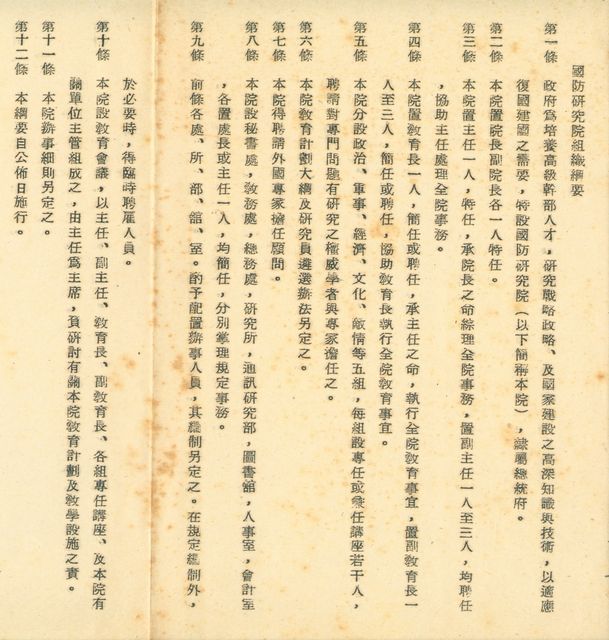 國防研究院組織綱要
第一條　政府為培養高級幹部人才，研究戰略政略、及國家建設之高深知識與技術，以適應
復國建國之需要，特設國防研究院（以下簡稱本院），隸屬總統府。
第二條　本院置院長副院長各一人特任。
第三條　本院置主任一人，特任，承院長之命綜理全院事務，置副主任一人至三人，均聘任
，協助主任處理全院事務。
第四條　本院置教育長一人，簡任或聘任，承主任之命，執行全院教育事宜，置副教育長一
人至三人，簡任或聘任，協助教育長執行全院教育事宜。
第五條　本院分設政治、軍事、經濟、文化、敵情等五組，每組設專任或兼任講座若干人，
聘請對專門問題有研究之權威學者與專家擔任之。
第六條　本院教育計劃大綱及研究員遴選辦法另定之。
第七條　本院得聘請外國專家擔任顧問。
第八條　本院設秘書處，教務處，總務處，研究所，通訊研究部，圖書館，人事室，會計室
，各置處長或主任一人，均簡任，分別掌理規定事務。
第九條　前條各處、所、部、舘、室。酌予配置辦事人員，其編制另定之。在規定編制外，
於必要時，得臨時聘雇人員。
第十條　本院設教育會議，以主任、副主任、教育長、副教育長、各組專任講座、及本院有
關單位主管組成之，由主任為主席，負研討有關本院教育計劃及教學設施之責。
第十一條　本院辦事細則另定之。
第十二條　本綱要自公佈日施行。